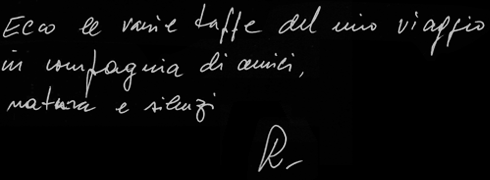 Ecco le varie taffe del mio viaggio
in compagnia di amici,
natura e silenzi
R.